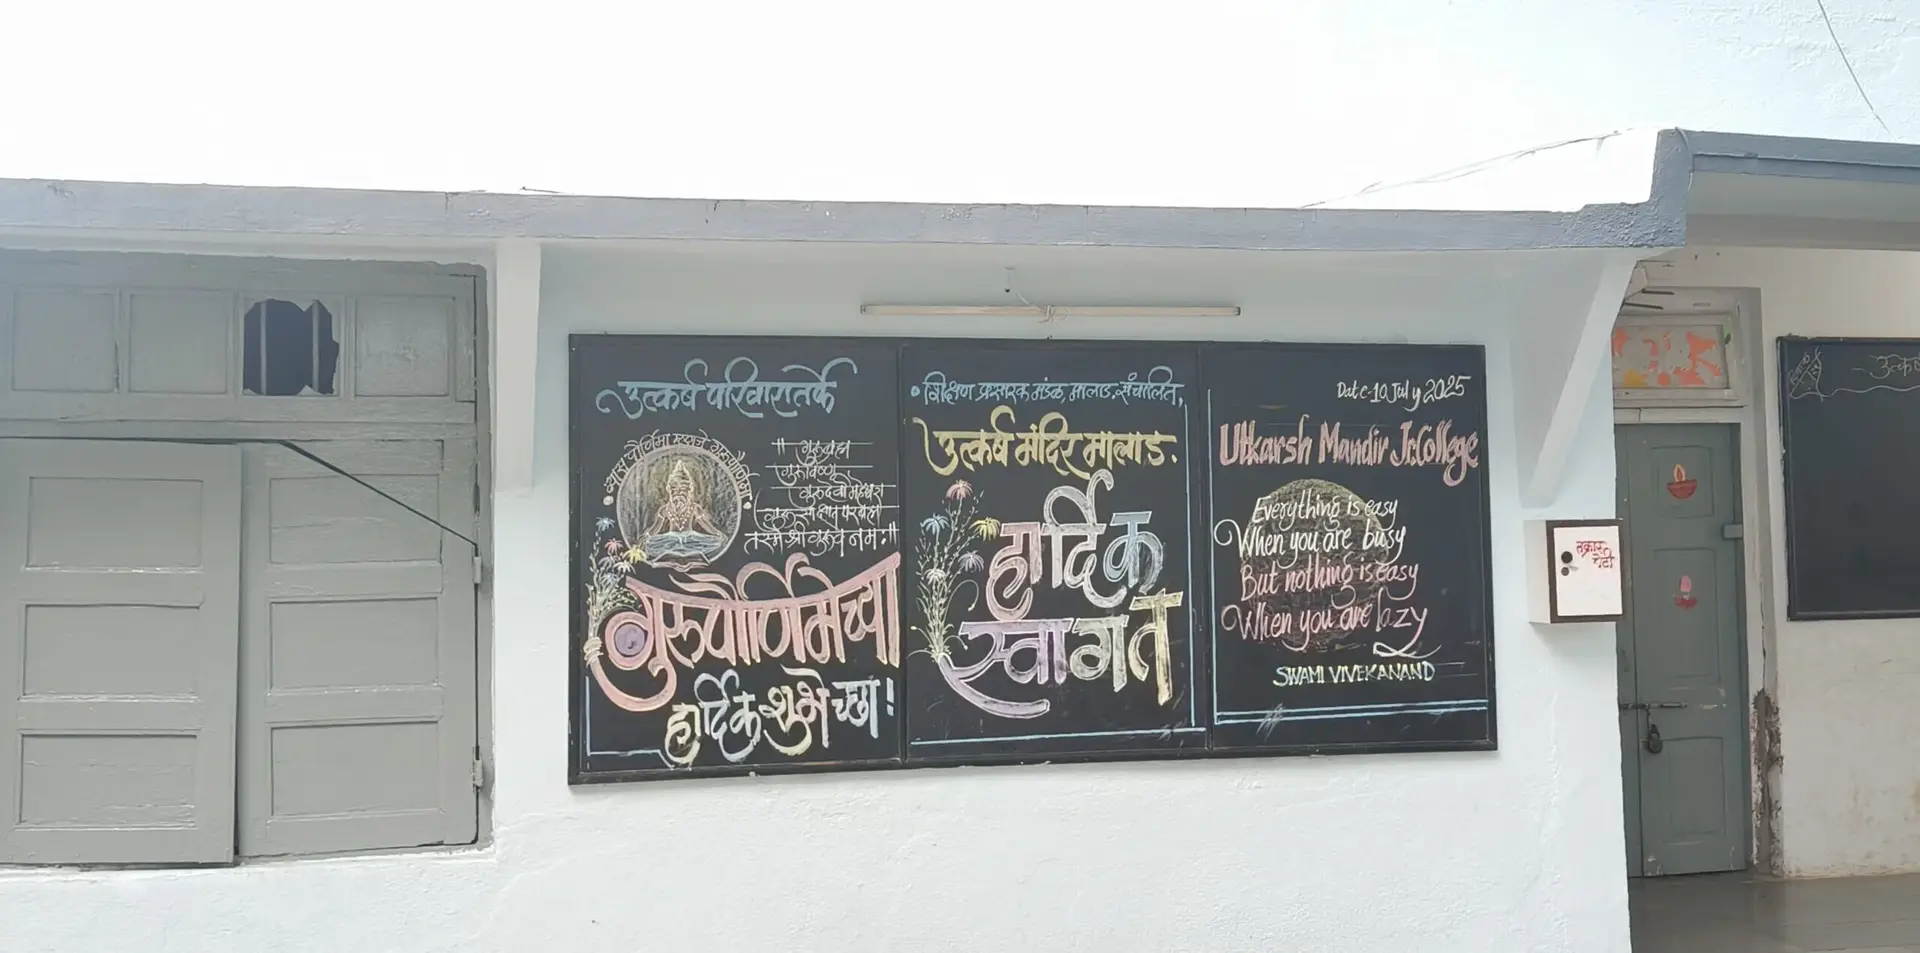 उत्कर्ष परिवारातर्फे
व्यास पौर्णिमा म्हणजे गुरुपौर्णिमा
॥ गुरुब्रह्मा
गुरुर्विष्णू
गुरुदेवो महेश्वरा
गुरु साक्षात परब्रह्म
तस्मै श्री गुरुवे नमः॥
गुरुपौर्णिमेच्या
हार्दिक शुभेच्छा!
शिक्षण प्रसारक मंडळ, मालाड. संचालित,
उत्कर्ष मंदिर मालाड.
हार्दिक
स्वागत
Date-10 July 2025
Utkarsh Mandir Jr.College
Everything is easy
When you are busy
But nothing is easy
When you are lazy
SWAMI VIVEKANAND
तक्रार
पेटी
उत्कर्ष